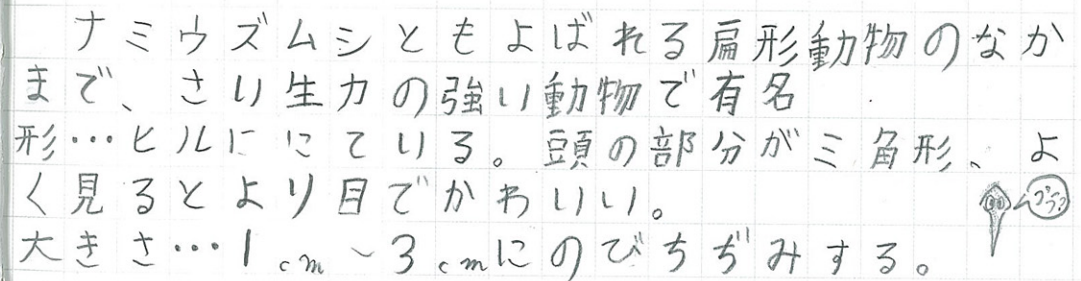 ナミウズムシともよばれる扁形動物のなか
まで、さい生力の強い動物で有名
形…ヒルににている。頭の部分が三角形、よ
く見るとより目でかわいい。
大きさ…1cm～3cmにのびちぢみする。
プラ?